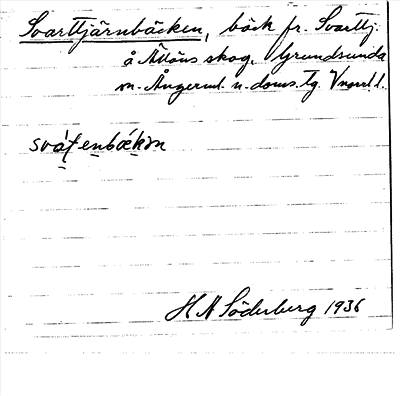 Svarttjärnbäcken, bäck fr. Svarttj.
å Ällöns skog, Grundsunda
sn. Ångerml. n. doms. tg. Vnorrl. l.
svátenbækɔn
H N Söderberg 1936